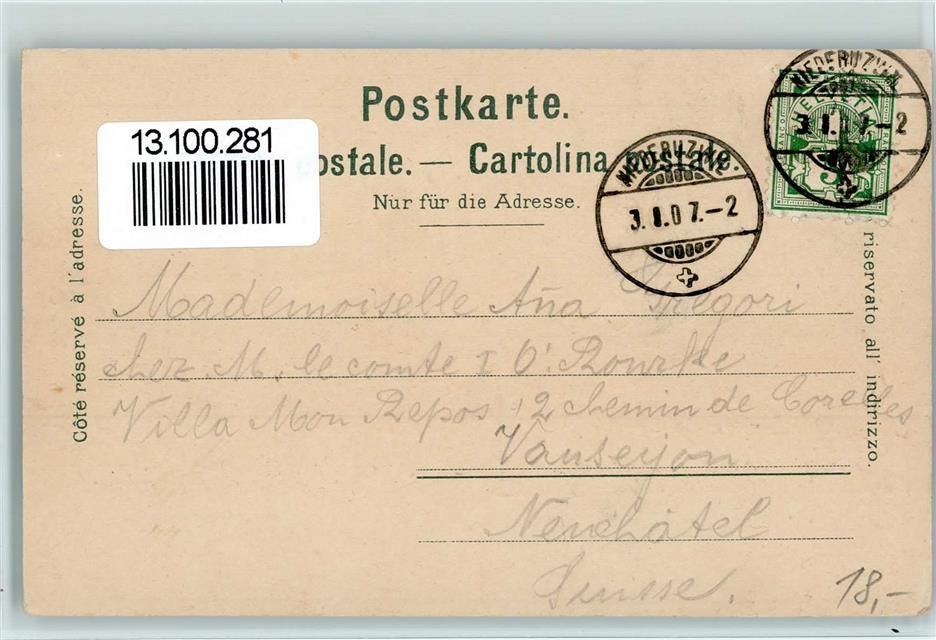 Postkarte.
13.100.281
postale. — Cartolina postale
Nur für die Adresse.
NIEDERUZWIL.
3. I. 07.–2
NIEDERUZWIL
3 I. 07.–2
HELVETIA
FRANCO
5
Côté réservé à l'adresse.
riservato all' indirizzo.
Mademoiselle Aña Gregori
chez M. le comte I O' Rourke
Villa Mon Repos, 2 chemin de Corelles
Vauseyon
Neuchâtel
Suisse.
18,–